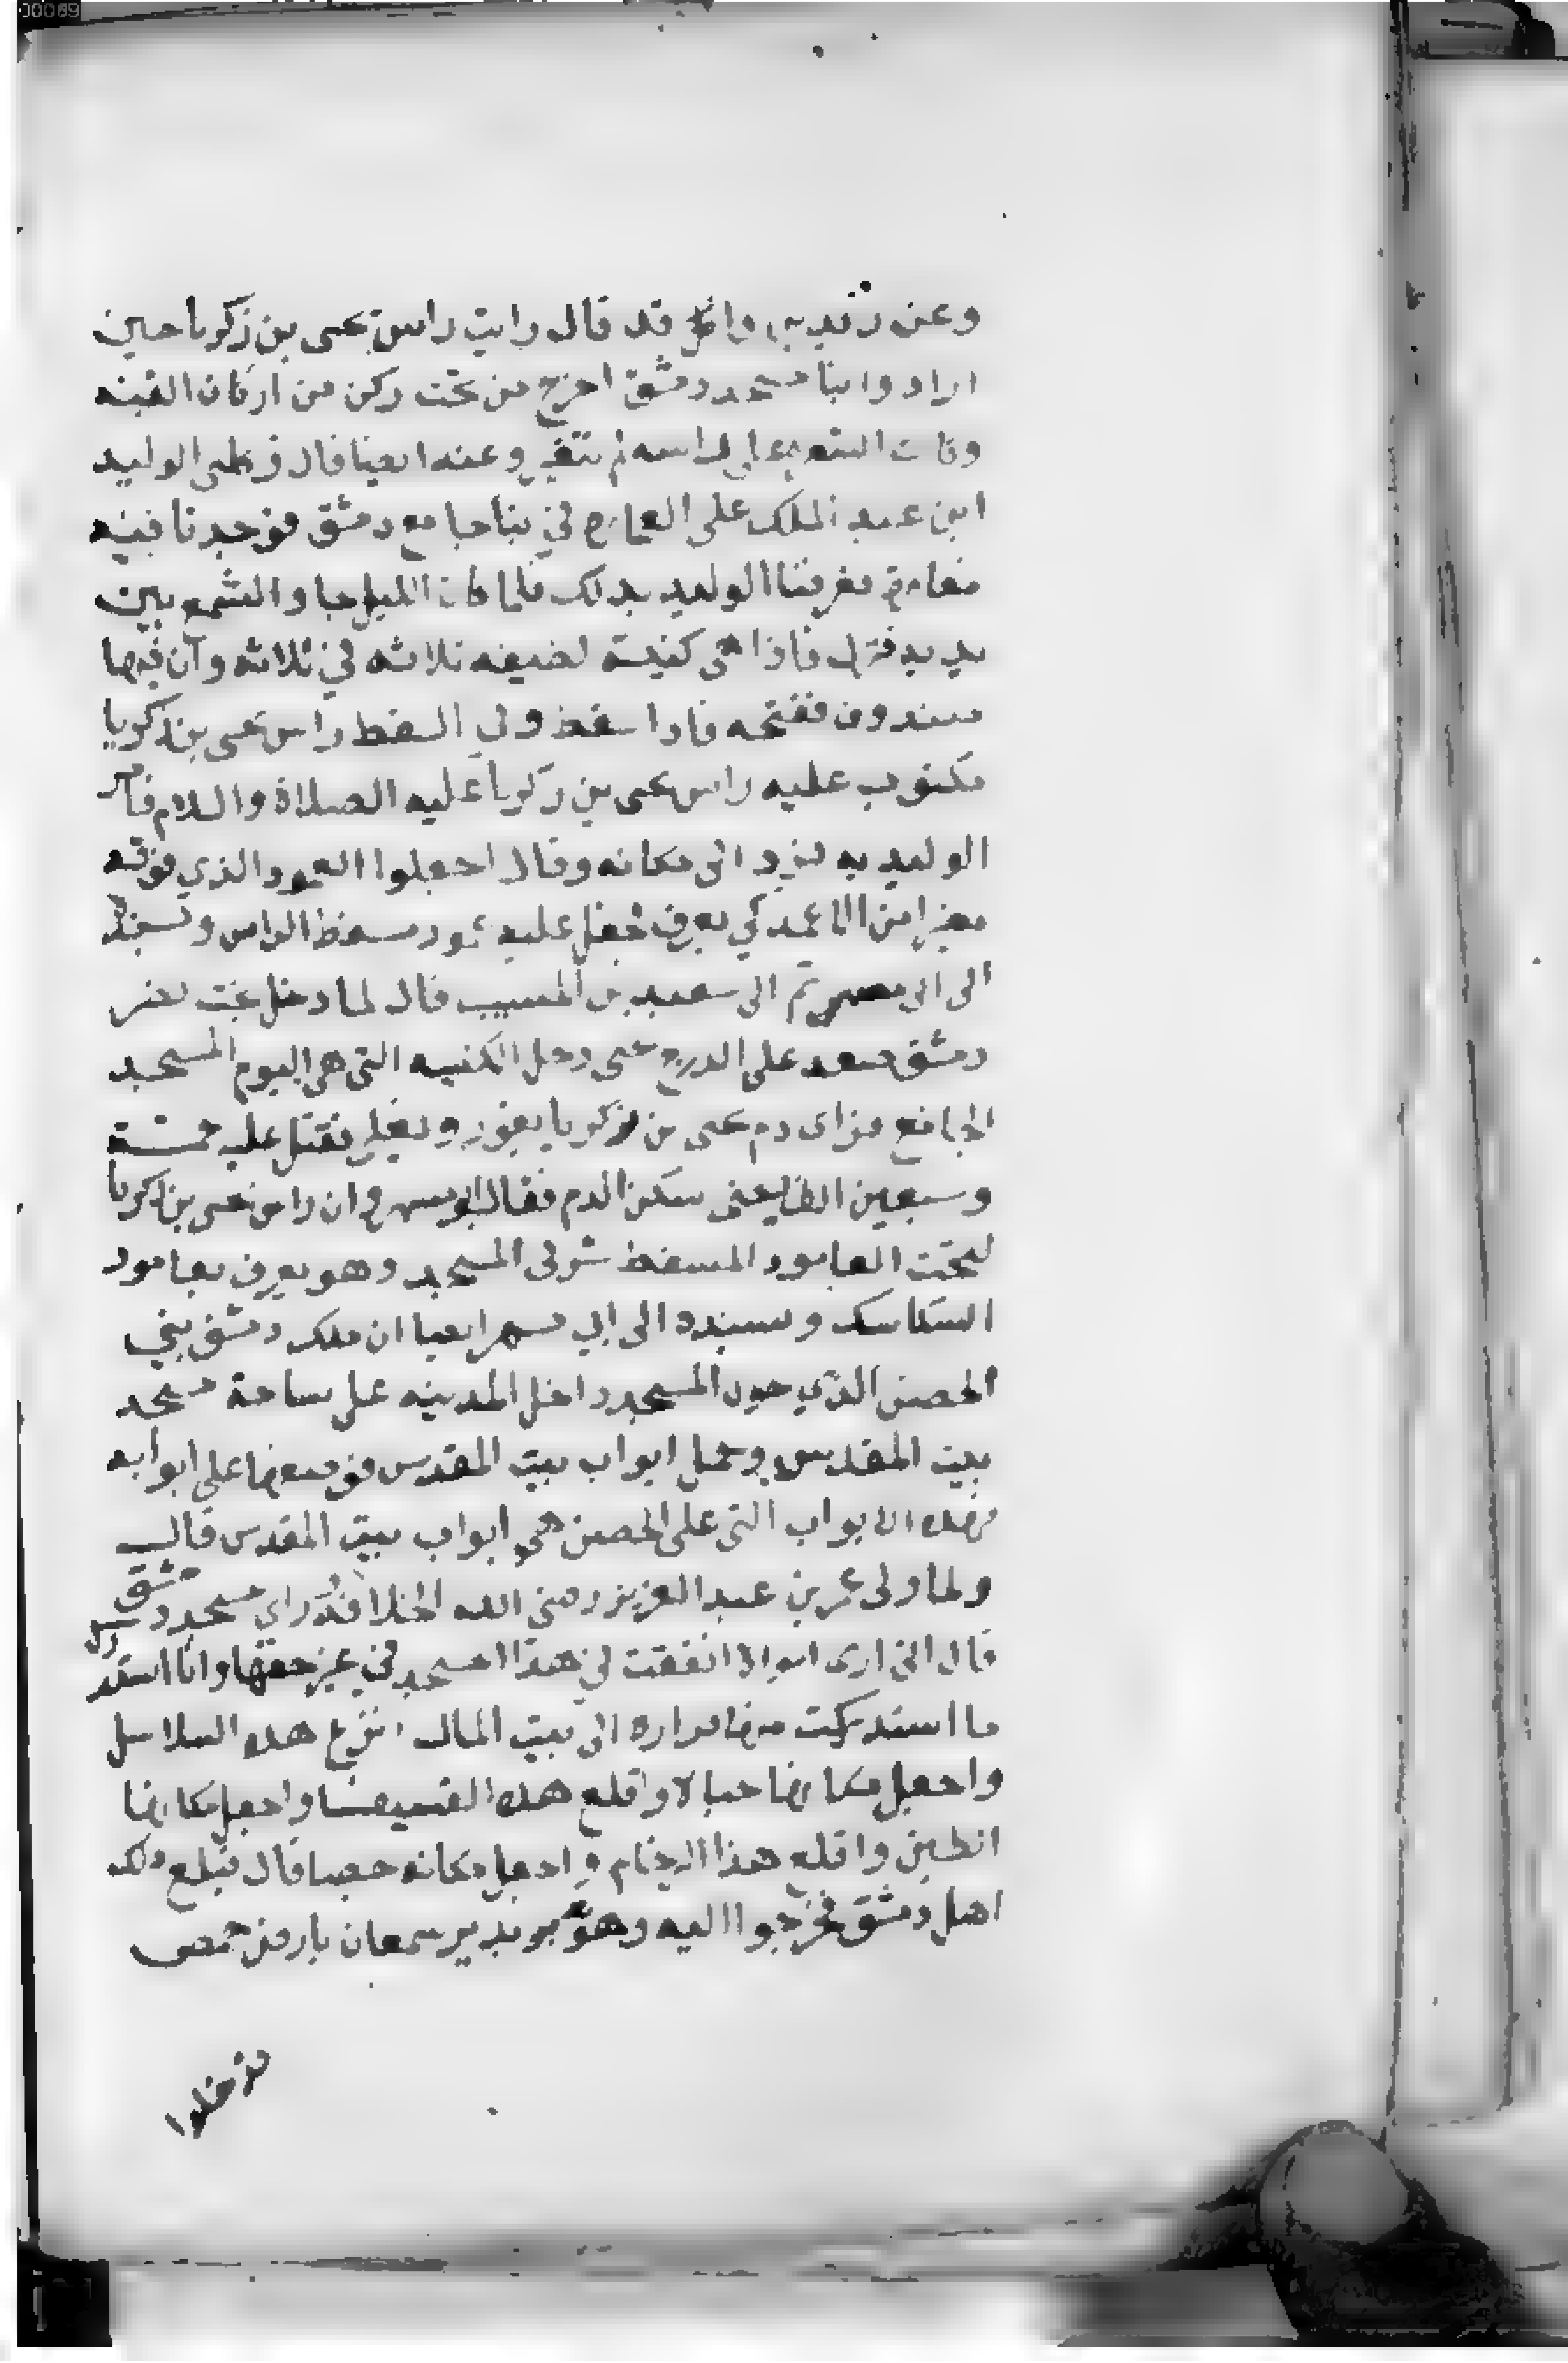 00069
وعن زيد بن واقد قال رايت راس يحيى بن زكريا حين
ارادوا بنا مسجد دمشق اخرج من تحت ركن من اركان القبه
وكانت الشعر على راسه لم تتغير وعنه ايضا قال وكلني الوليد
ابن عبد الملك على العمارة في بنا جامع دمشق فوجدنا فيه
مغارة فعرفنا الوليد بذلك فلما كان الليل جا والشمع بين
يديه فنزل فاذا هي كنيسة لطيفه ثلاثه في ثلاثه وان فيها
صندوق ففتحه فاذا سفط وفي السفط راس يحيى بن زكريا
مكتوب عليه راس يحيى بن زكريا عليه الصلاة والسلام فامر
الوليد به فرد الى مكانه وقال اجعلوا العمود الذي فوقه
مغيرا من الاعمدكي يعرف فجعل عليه عمود مسفط الراس وبسنده
الى ابي مسهر ثم الى سعيد بن المسيب قال لما دخل بخت نصر
دمشق صعد على الدرج حتى دخل الكنيسه التي هي اليوم المسجد
الجامع فراى دم يحيى بن زكريا يفور ويغلي فقتل عليه خمسة
وسبعين الفا يعني سكن الدم فقال ابو مسهر وان راس يحيى بن زكريا
لتحت العامود المسفط شرقي المسجد وهو يعرف بعامود
السكاسك وبسنده الى ابي مسهر ايضا ان ملك دمشق بني
الحصن الذي حول المسجد داخل المدينه على مساحة مسجد
بيت المقدس وحمل ابواب بيت المقدس فوضعها على ابوابه
فهذه الابواب التي على الحصن هي ابواب بيت المقدس قال
ولما ولى عمر بن عبد العزيز رضي الله الخلافه راى مسجد دمشق
قال اني ارى اموالا انفقت في هذا المسجد في غير حقها وانا استدرك
ما استدركت منها فراده الى بيت المال انزع هذه السلاسل
واجعل مكانها حبالا واقلع هذه الفسيفسا واجعل مكانها
الطين واقلع هذا الرخام واجعل مكانه جصا قال فبلغ ذلك
اهل دمشق فخرجوا اليه وهو بدير سمعان بارض حمص
فدخلوا